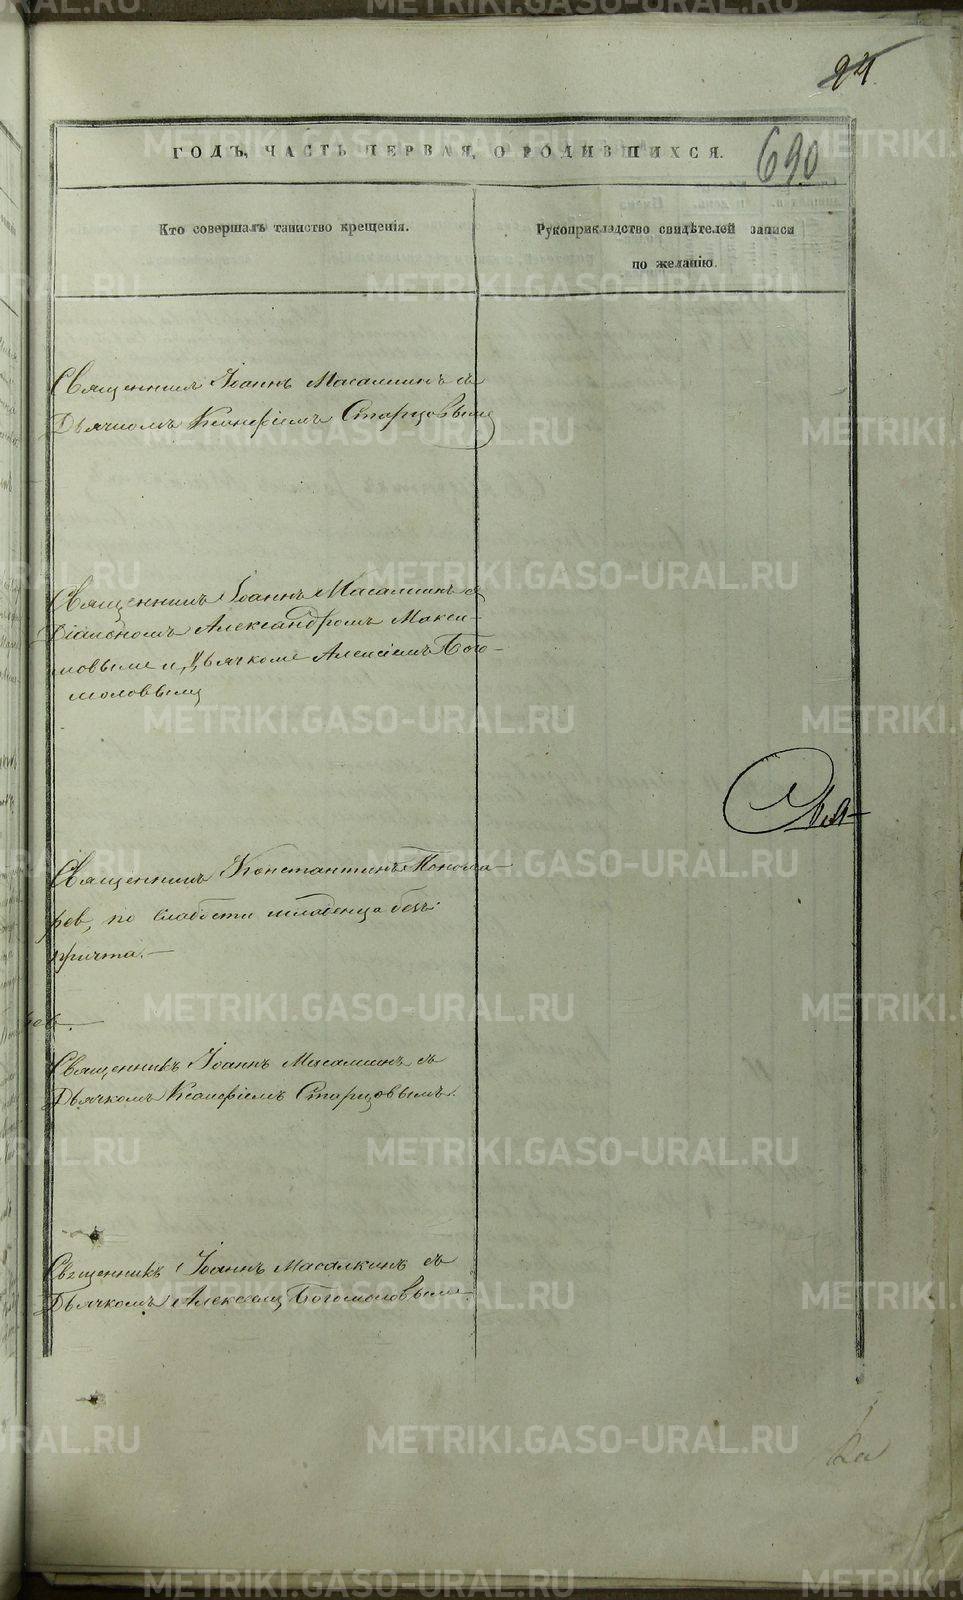 24.
690
ГОДЪ, ЧАСТЬ ПЕРВАЯ, О РОДИВШИХСЯ.
Кто совершалъ таинство крещенія.
Рукоприкладство свидѣтелей записи
по желанію.
Священникъ Іоаннъ Масалкинъ съ
Дьячкомъ Ксенофіемъ Старцовымъ
Священникъ Іоаннъ Масалкинъ съ
Діакономъ Александромъ Макси-
мовымъ и Дьячкомъ Алексіемъ Бого-
моловымъ
Священникъ Константинъ Понома-
рев, по слабости младенца безъ
причта.
Священникъ Іоаннъ Масалкинъ съ
Дьячкомъ Ксенофіемъ Старцовымъ.
Священникъ Іоаннъ Масалкинъ съ
Дьячкомъ Алексеемъ Богомоловымъ
Свя-
METRIKI.GASO-URAL.RU